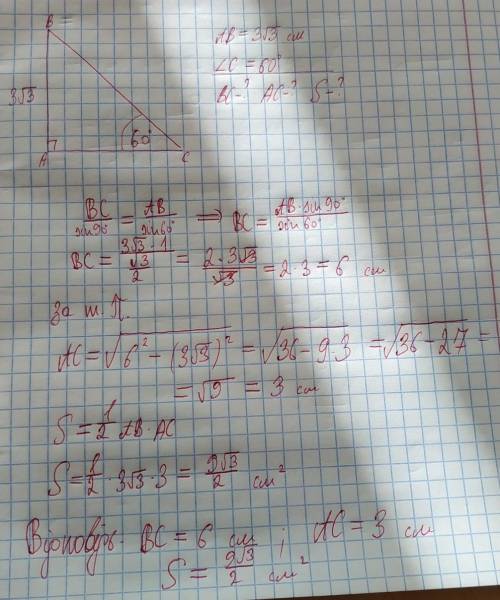 B
AB = 3√3 см
∠C = 60°
BC-? AC-? S-?
3√3
60°
A
C
BC/sin90° = AB/sin60° ⟹ BC = AB·sin90°/sin60°
BC = (3√3·1)/(√3/2) = (2·3√3)/√3 = 2·3 = 6 см
за т. П.
AC = √(6² - (3√3)²) = √(36 - 9·3) = √(36 - 27) =
= √9 = 3 см
S = 1/2 AB·AC
S = 1/2 · 3√3 · 3 = 9√3/2 см²
Відповідь: BC = 6 см ; AC = 3 см
S = 9√3/2 см²